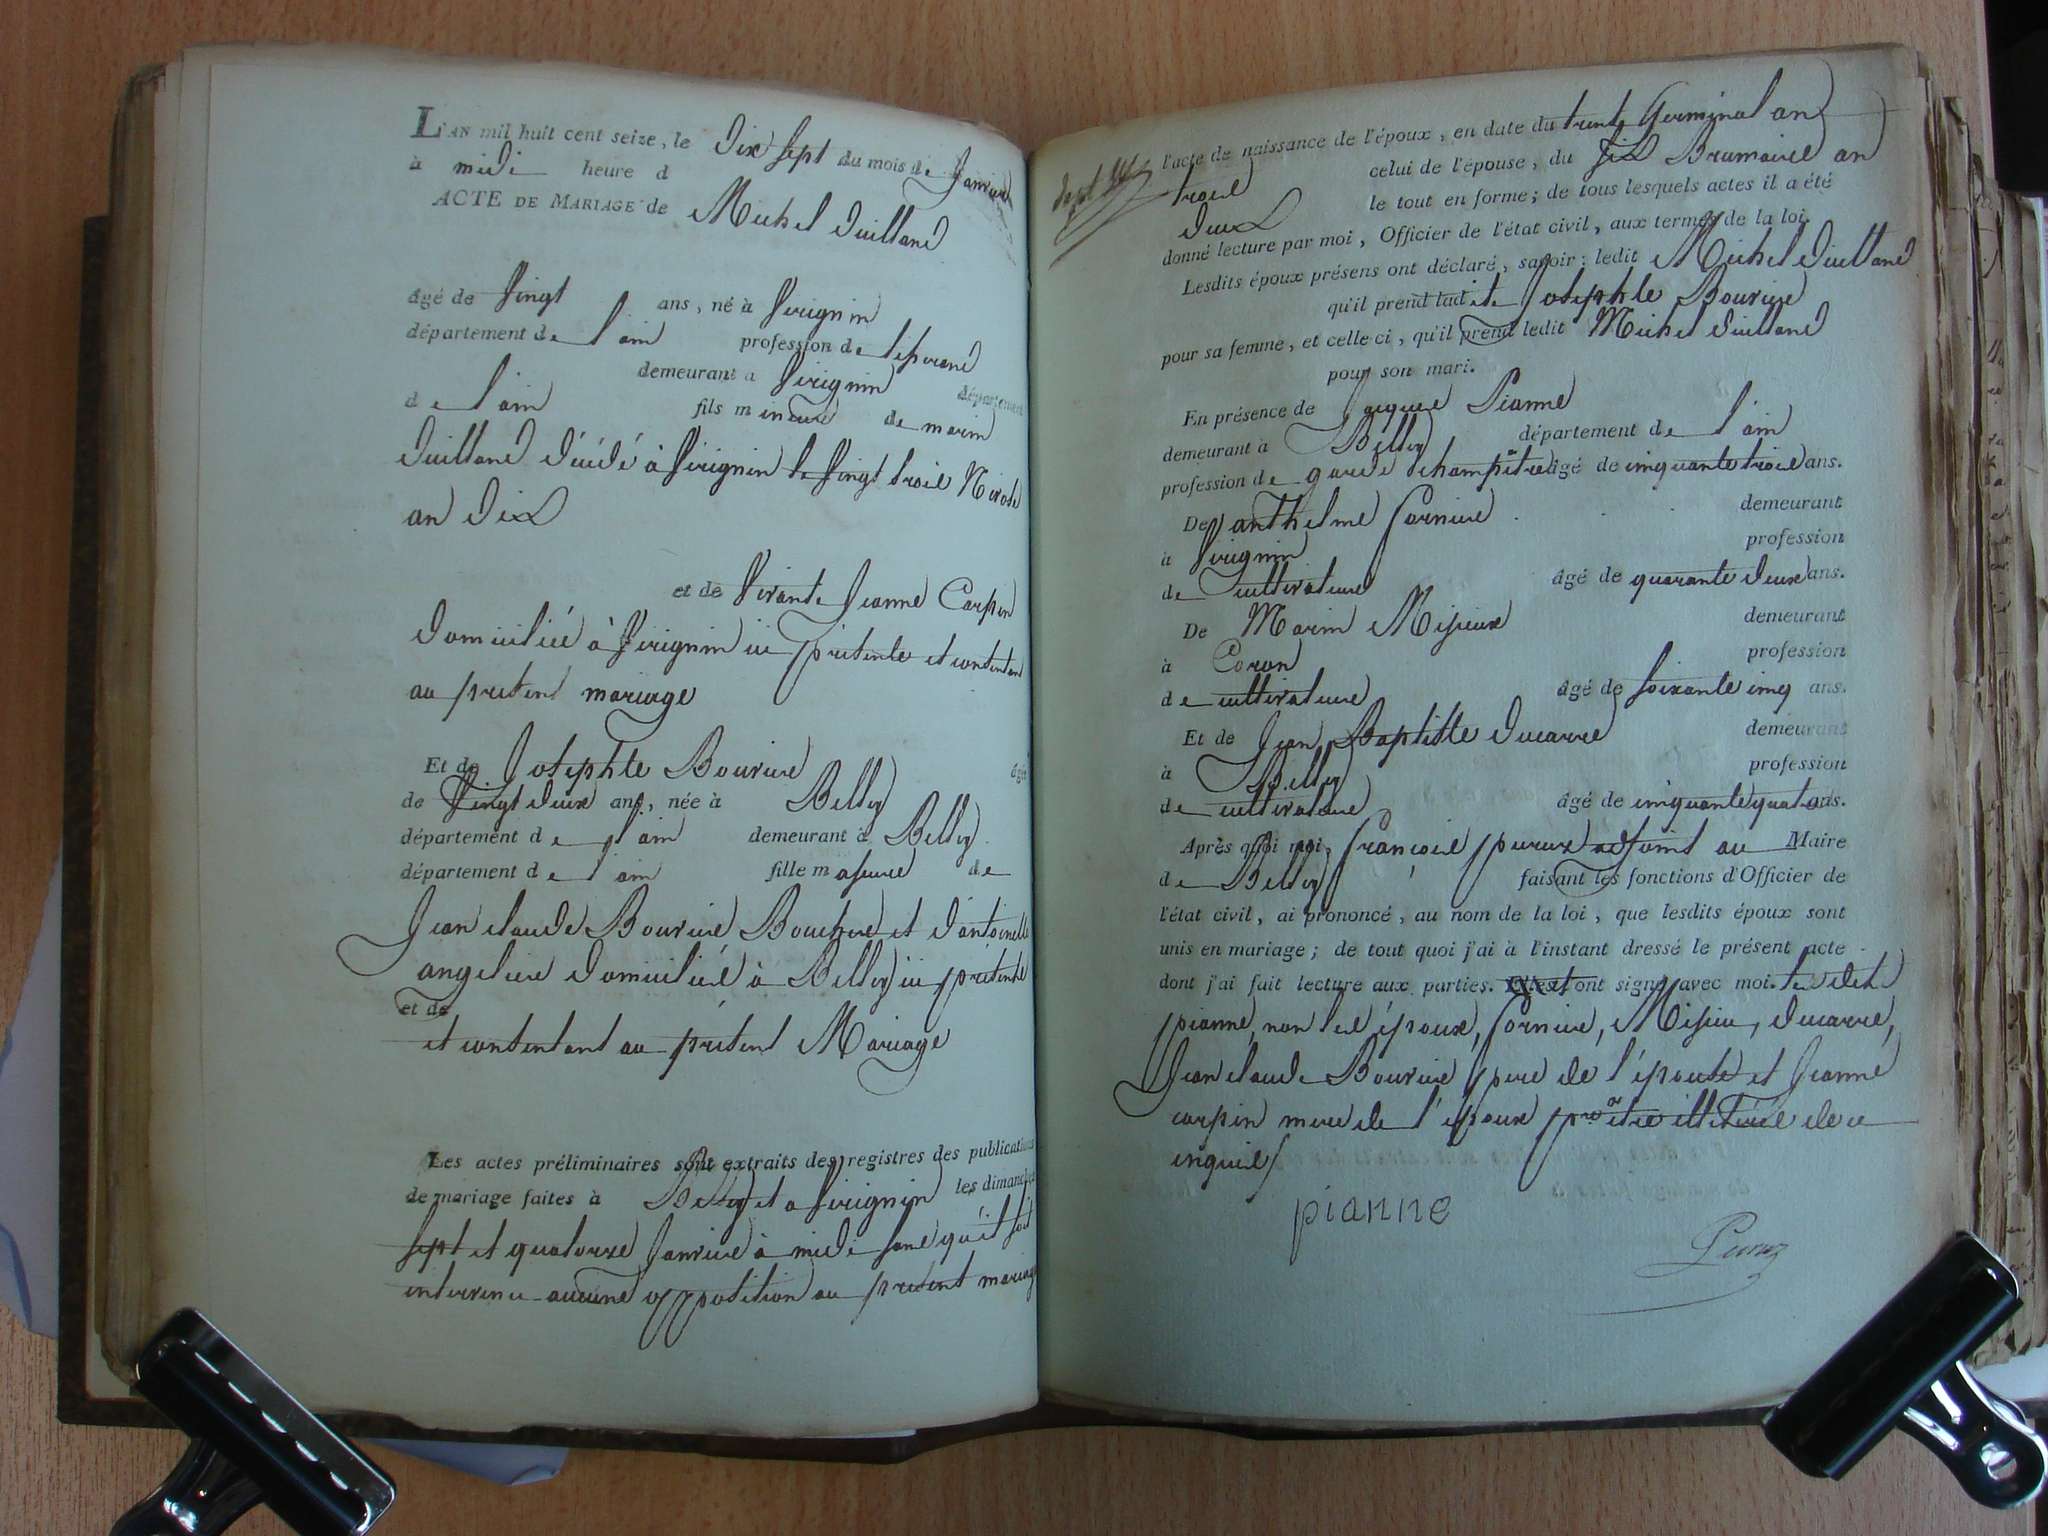 L'AN mil huit cent seize, le Dix sept du mois de Janvier
à midi heure d
ACTE DE MARIAGE de Michel Vuillard
âgé de Vingt ans, né à Virignin
département de l'ain profession de
demeurant à Virignin département
de l'ain fils mineur de marin
Vuillard décédé à Virignin le Vingt trois Nivose
an Dix
et de Vivante Jeanne Carpin
Domiciliée à Virignin ici présente et consentant
au présent mariage
Et de Josephte Bouvier âgée
de Vingt deux ans, née à Belley
département de l'ain demeurant à Belley
département de l'ain fille majeure de
Jean claude Bouvier Boucher et d'antoinette
angelier domiciliés à Belley ici présents
et de
et consentant au présent Mariage
Les actes préliminaires sont extraits des registres des publications
de mariage faites à Belley et a Virignin les dimanches
sept et quatorze Janvier à midi sans qu'il soit
intervenu aucune opposition au présent mariage
l'acte de naissance de l'époux, en date du trente Germinal an
trois celui de l'épouse, du six Brumaire an
deux le tout en forme; de tous lesquels actes il a été
donné lecture par moi, Officier de l'état civil, aux termes de la loi.
Lesdits époux présens ont déclaré, savoir: ledit Michel Vuillard
qu'il prend ladite Josephte Bouvier
pour sa femme, et celle ci, qu'il prend ledit Michel Vuillard
pour son mari.
En présence de Jacques Pianne
demeurant à Belley département de l'ain
profession de garde champêtre âgé de cinquante trois ans.
De anthelme Cornier demeurant
à Virignin profession
de cultivateur âgé de quarante deux ans.
De Marin Mijieux demeurant
à Coron profession
de cultivateur âgé de soixante cinq ans.
Et de Jean Baptiste Ducarre demeurant
à Belley profession
de cultivateur âgé de cinquante quatre ans.
Après quoi moi, françois peruz adjoint au Maire
de Belley faisant les fonctions d'Officier de
l'état civil, ai prononcé, au nom de la loi, que lesdits époux sont
unis en mariage; de tout quoi j'ai à l'instant dressé le présent acte
dont j'ai fait lecture aux parties. ont signé avec moi. ledit
pianne, non les époux, Cornier, Mijieu, ducarre,
Jean claude Bouvier pere de l'épouse et Jeanne
carpin mere de l'époux pr être illitérés de ce
enquis
pianne
Peruz